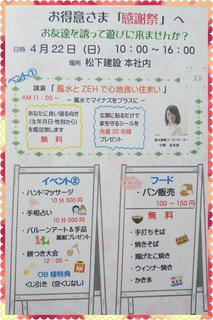 お得意さま「感謝祭」へ
お友達を誘って遊びに来ませんか?
日時 4月22日(日) 10:00~16:00
場所 松下建設 本社内
イベント①
講演「風水とZEHで心地良い住まい」
AM 11:00~ ~風水でマイナスをプラスに~
あなたに良い寝向きを
(生年月日・性別から)
を鑑定致します
無料
玄関に貼るだけで
家を守るシールを
先着20名様
プレゼント
イベント②
・ハンドマッサージ
10分300円
・手相占い
10分200円
・バルーンアート&手品
・餅つき大会
12:00~
OB様特典
くじ引き(空くじなし)
フード
・パン販売
100~150円
無料
・手打ちそば
・焼きそば
・揚げたこ焼き
・ウィンナー焼き
・かき氷